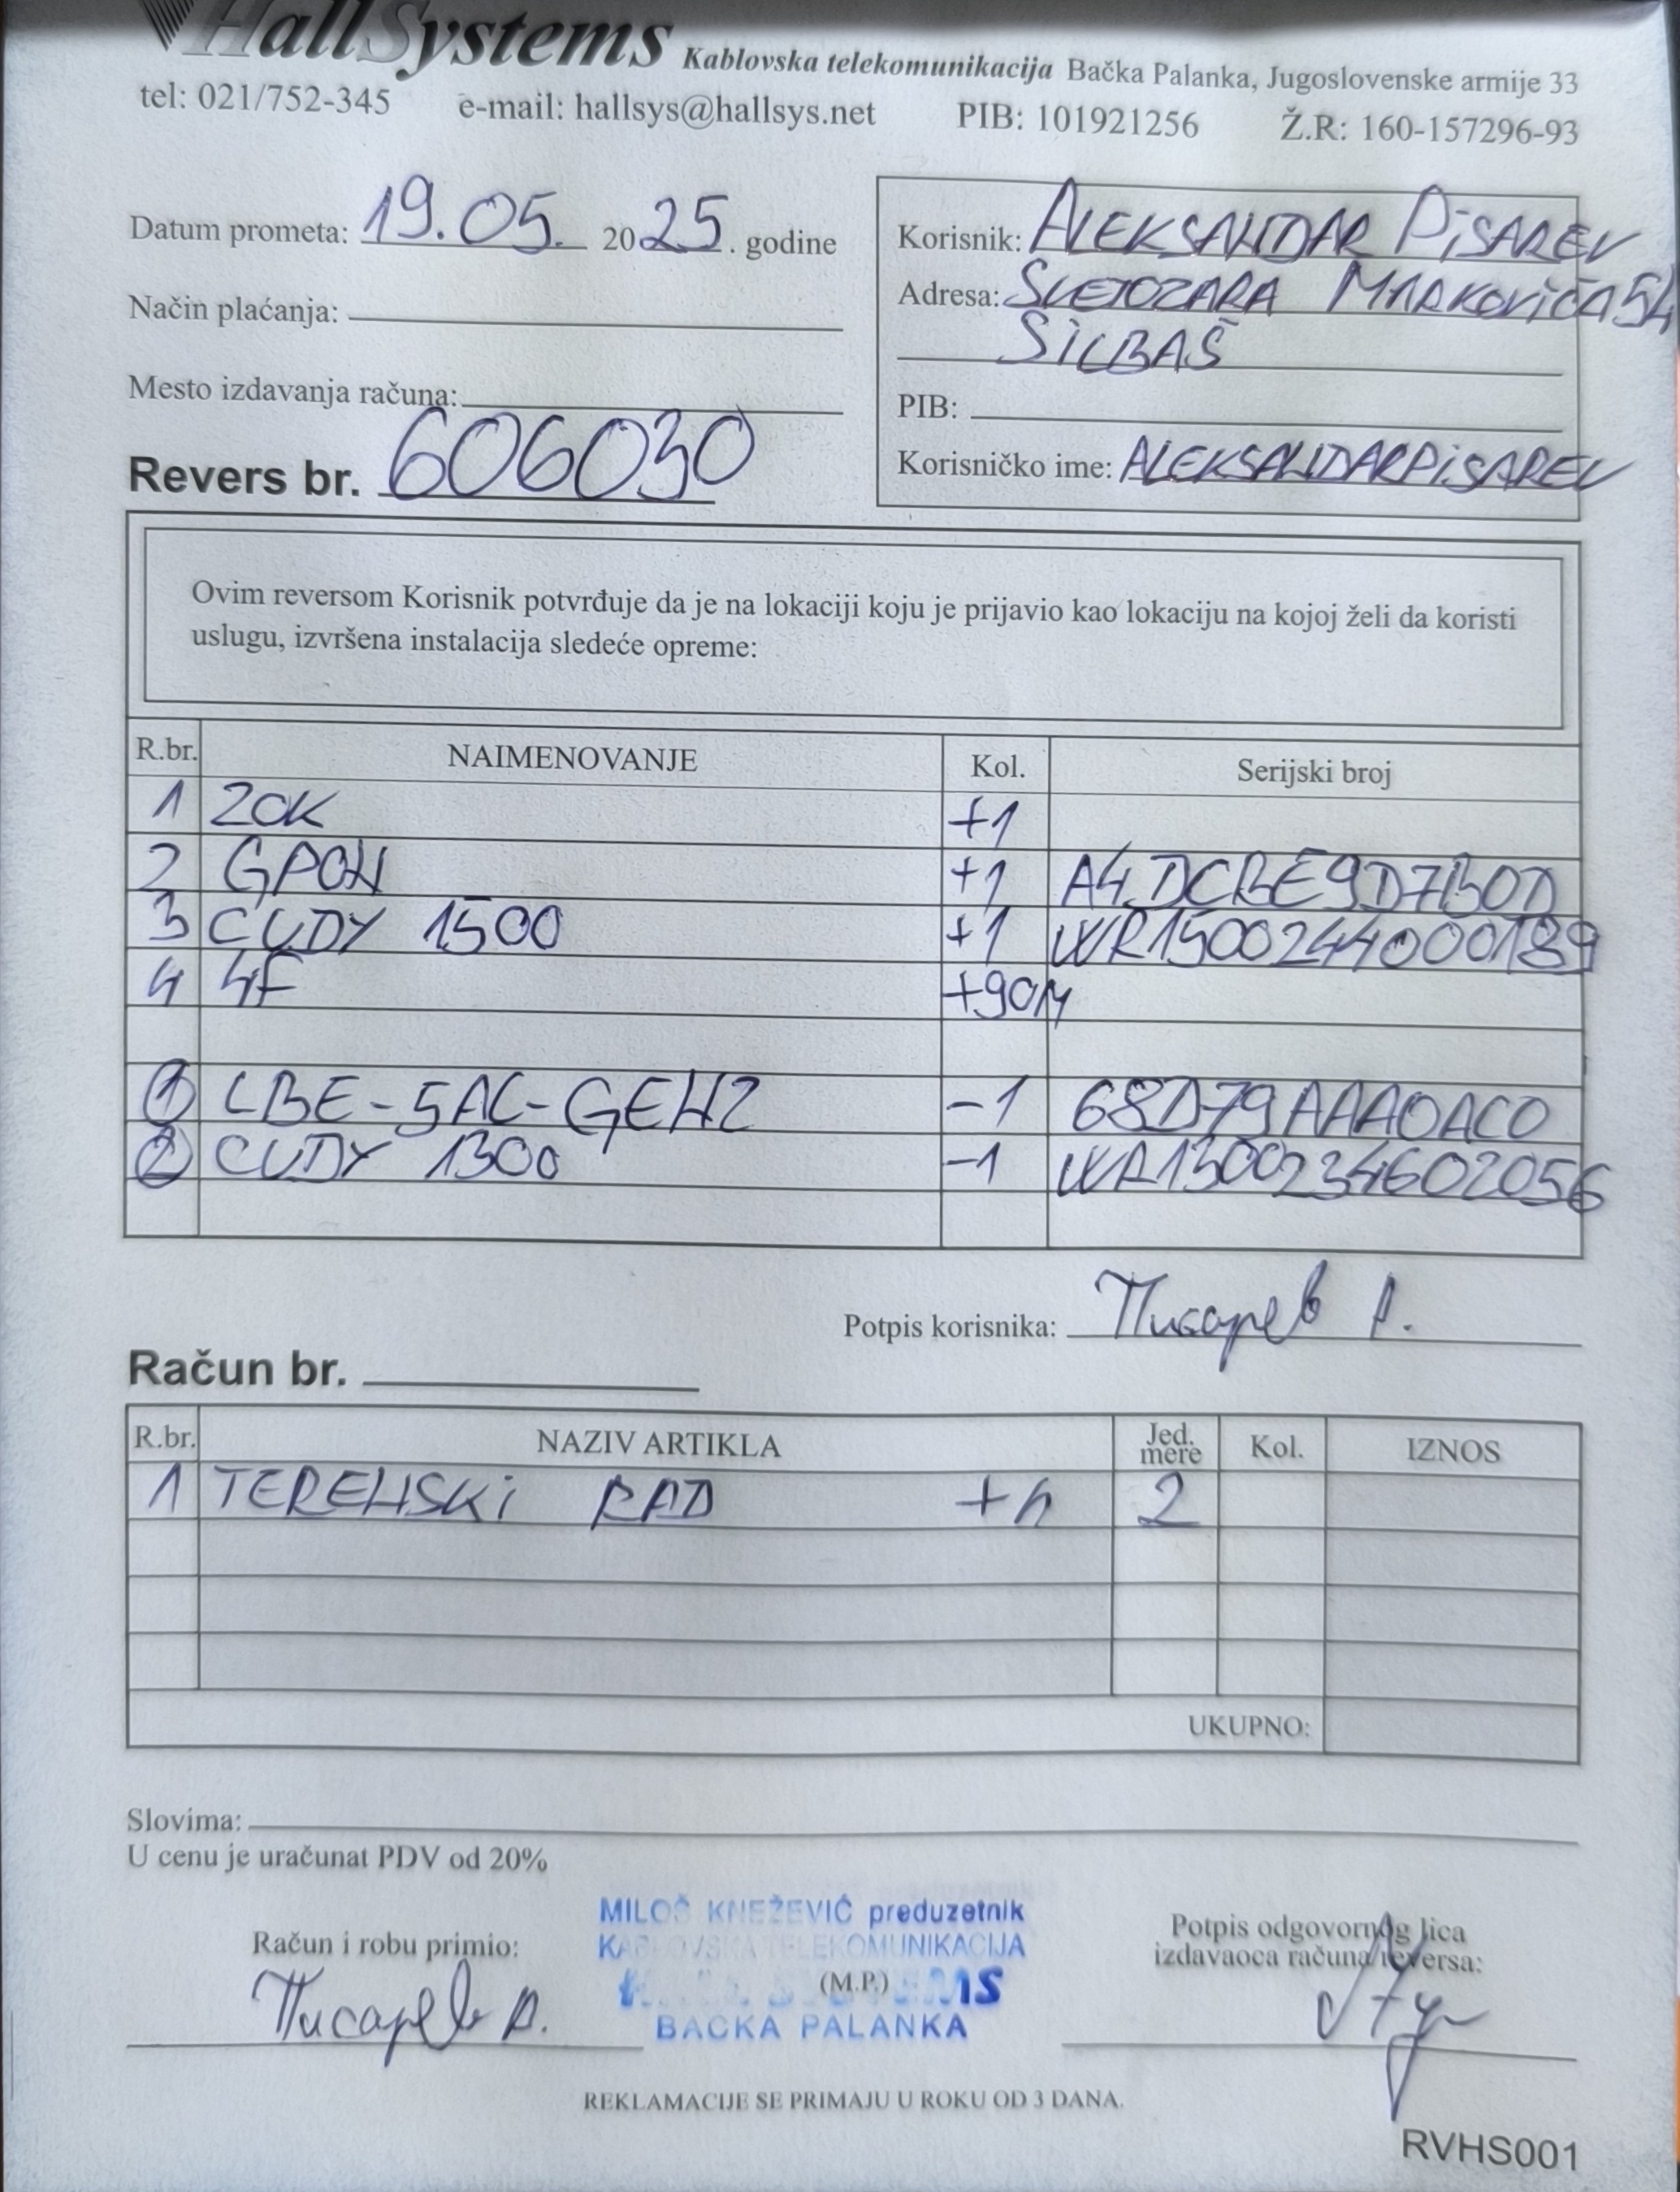 HallSystems Kablovska telekomunikacija Bačka Palanka, Jugoslovenske armije 33
tel: 021/752-345 e-mail: hallsys@hallsys.net PIB: 101921256 Ž.R: 160-157296-93
Datum prometa: 19.05. 2025. godine
Način plaćanja:
Mesto izdavanja računa:
Revers br. 606030
Korisnik: ALEKSANDAR PiSAREV
Adresa: SVETOZARA MARKOViĆA 54
SiLBAŠ
PIB:
Korisničko ime: ALEKSANDARPiSAREV
Ovim reversom Korisnik potvrđuje da je na lokaciji koju je prijavio kao lokaciju na kojoj želi da koristi
uslugu, izvršena instalacija sledeće opreme:
R.br. NAIMENOVANJE Kol. Serijski broj
1 ZOK +1
2 GPON +1 A4DCBE9D7B0D
3 CUDY 1500 +1 WR1500244000189
4 4F +90M
1 LBE-5AC-GEN2 -1 68D79AAA0AC0
2 CUDY 1300 -1 WR1300234602056
Potpis korisnika: Писарев А.
Račun br.
R.br. NAZIV ARTIKLA Jed. mere Kol. IZNOS
1 TERENSKi RAD +h 2
UKUPNO:
Slovima:
U cenu je uračunat PDV od 20%
MILOŠ KNEŽEVIĆ preduzetnik
KABLOVSKA TELEKOMUNIKACIJA
(M.P.)
BAČKA PALANKA
Račun i robu primio:
Писарев А.
Potpis odgovornog lica
izdavaoca računa/reversa:
REKLAMACIJE SE PRIMAJU U ROKU OD 3 DANA.
RVHS001